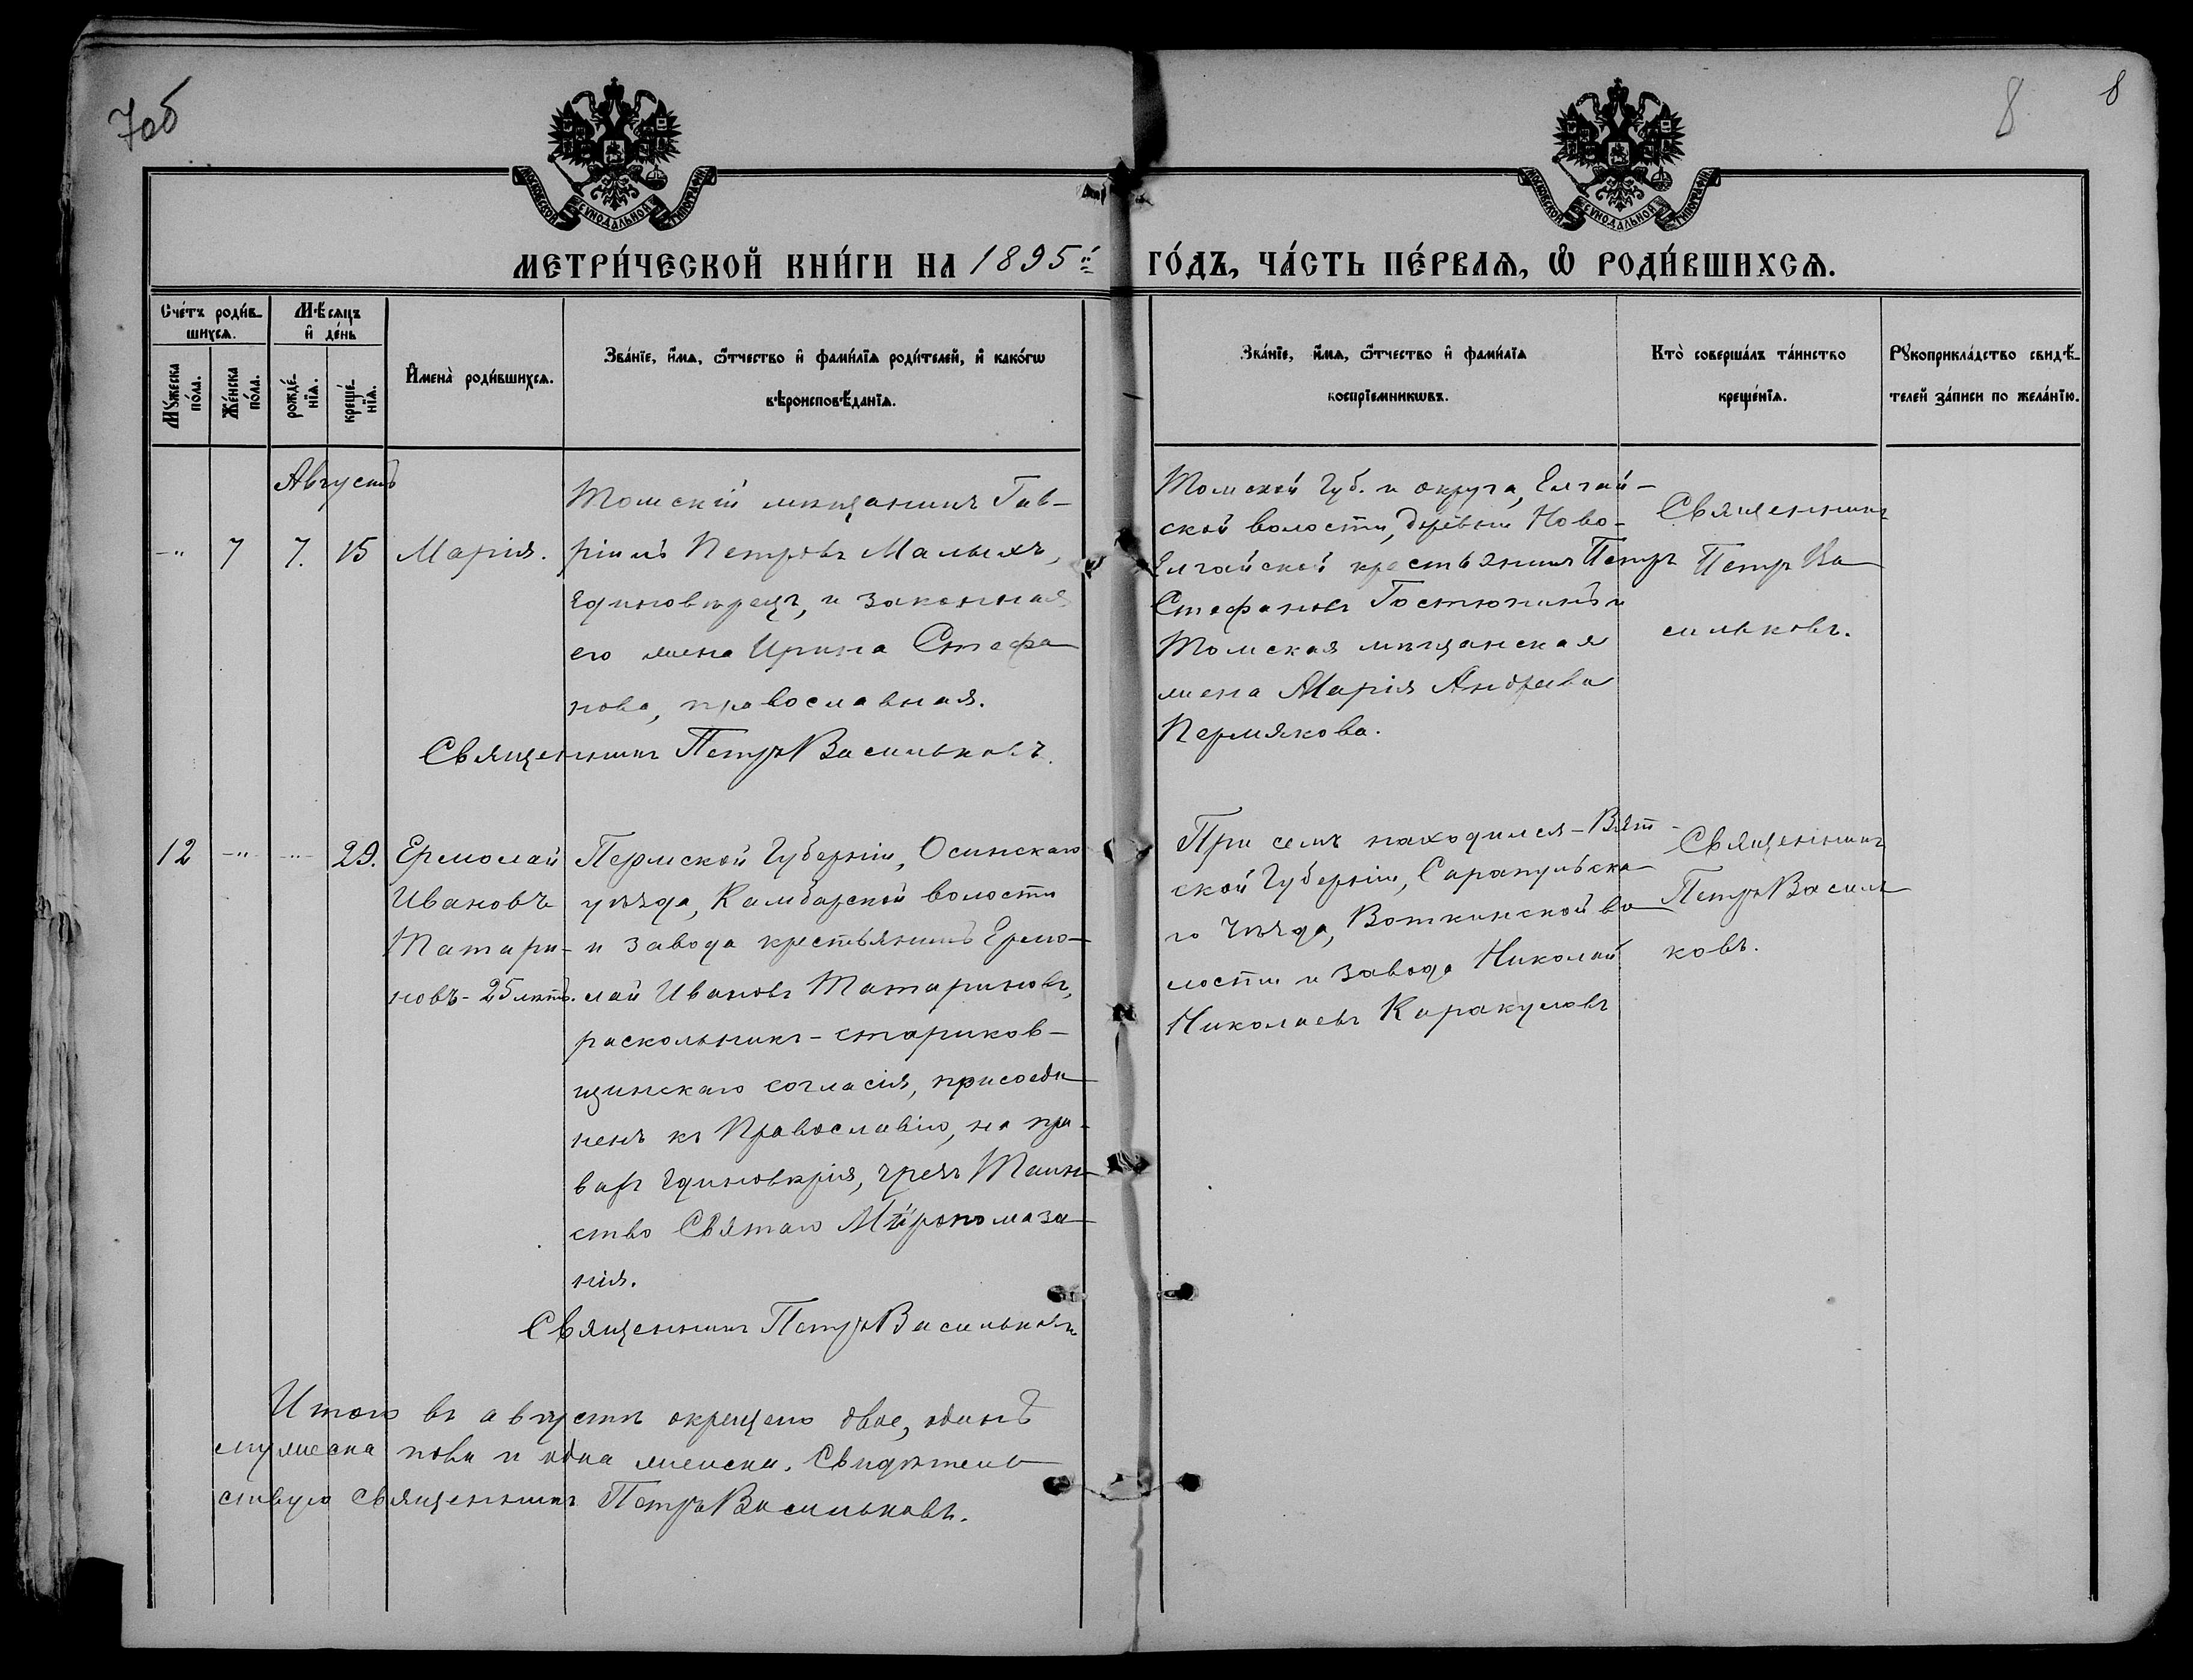 7об
8
8
МОСКОВСКОЙ СѴНОДАЛЬНОЙ ТИПОГРАФІИ
МОСКОВСКОЙ СѴНОДАЛЬНОЙ ТИПОГРАФІИ
МЕТРИ́ЧЕСКОЙ КНИ́ГИ НА 1895й ГО́ДЪ, ЧА́СТЬ ПЕ́РВАѦ, Ѡ РОДИ́ВШИХСѦ.
Сче́тъ роди́в-
шихсѧ.
Мѣ́сяцъ
и҆ де́нь
Мꙋ́жеска по́ла.
Же́нска по́ла.
рожде́-
нїѧ.
креще́-
нїѧ.
И҆мена̀ роди́вшихсѧ.
Зва́нїе, и҆́мѧ, ѻ҆́тчество и҆ фами́лїѧ роди́телей, и҆ како́гѡ
вѣроисповѣ́данїѧ.
Зва́нїе, и҆́мѧ, ѻ҆́тчество и҆ фами́лїѧ
воспрїемникѡвъ.
Кто̀ соверша́лъ та́инство
креще́нїѧ.
Рꙋкоприкла́дство свидѣ́-
телей за́писи по жела́нїю.
Августъ
-"- 7 7. 15 Марія.
Томскій мѣщанинъ Гав-
ріилъ Петровъ Малыхъ,
единовѣрецъ, и законная
его жена Ирина Стефа
нова, православная.
Священникъ Петръ Васильковъ.
Томской Губ. и округа, Елгай-
ской волости, деревни Ново-
Елгайской крестьянинъ Петръ
Стефановъ Гостюхинъ и
Томская мѣщанская
жена Марія Андреева
Пермякова.
Священникъ
Петръ Ва
сильковъ.
12 -"- -"- 29. Ермолай
Ивановъ
Татари-
новъ - 25 лѣтъ.
Пермской Губерніи, Осинскаго
уѣзда, Камбарской волости
и завода крестьянинъ Ермо-
лай Ивановъ Татариновъ,
раскольникъ - стариков-
щинскаго согласія, присоеди
ненъ къ Православію, на пра-
вахъ единовѣрія, чрезъ Таин-
ство Святаго Мѵропомаза
нія.
Священникъ Петръ Васильковъ
При семъ находился - Вят-
ской Губерніи, Сарапульска
го уѣзда, Воткинской во
лости и завода Николай
Николаевъ Каракуловъ
Священникъ
Петръ Василь
ковъ.
Итого въ августѣ окрещено двое, одинъ
мужеска пола и одна женска. Свидѣтель
ствую священникъ Петръ Васильковъ.